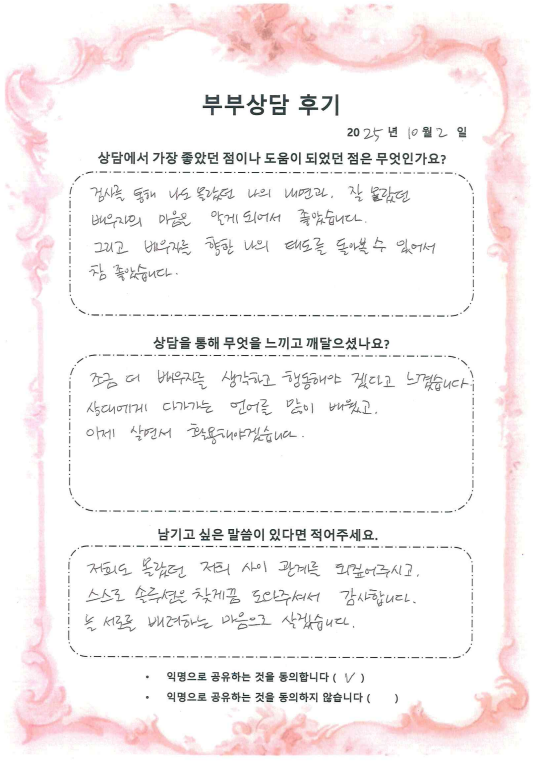 부부상담 후기
2025년 10월 2일
상담에서 가장 좋았던 점이나 도움이 되었던 점은 무엇인가요?
검사를 통해 나도 몰랐던 나의 내면과, 잘 몰랐던
배우자의 마음을 알게 되어서 좋았습니다.
그리고 배우자를 향한 나의 태도를 돌아볼 수 있어서
참 좋았습니다.
상담을 통해 무엇을 느끼고 깨달으셨나요?
조금 더 배우자를 생각하고 행동해야 겠다고 느꼈습니다
상대에게 다가가는 언어를 많이 배웠고,
이제 살면서 활용해야겠습니다.
남기고 싶은 말씀이 있다면 적어주세요.
저희도 몰랐던 저희 사이 관계를 되짚어주시고,
스스로 솔루션을 찾게끔 도와주셔서 감사합니다.
늘 서로를 배려하는 마음으로 살겠습니다.
• 익명으로 공유하는 것을 동의합니다 ( V )
• 익명으로 공유하는 것을 동의하지 않습니다 ( )